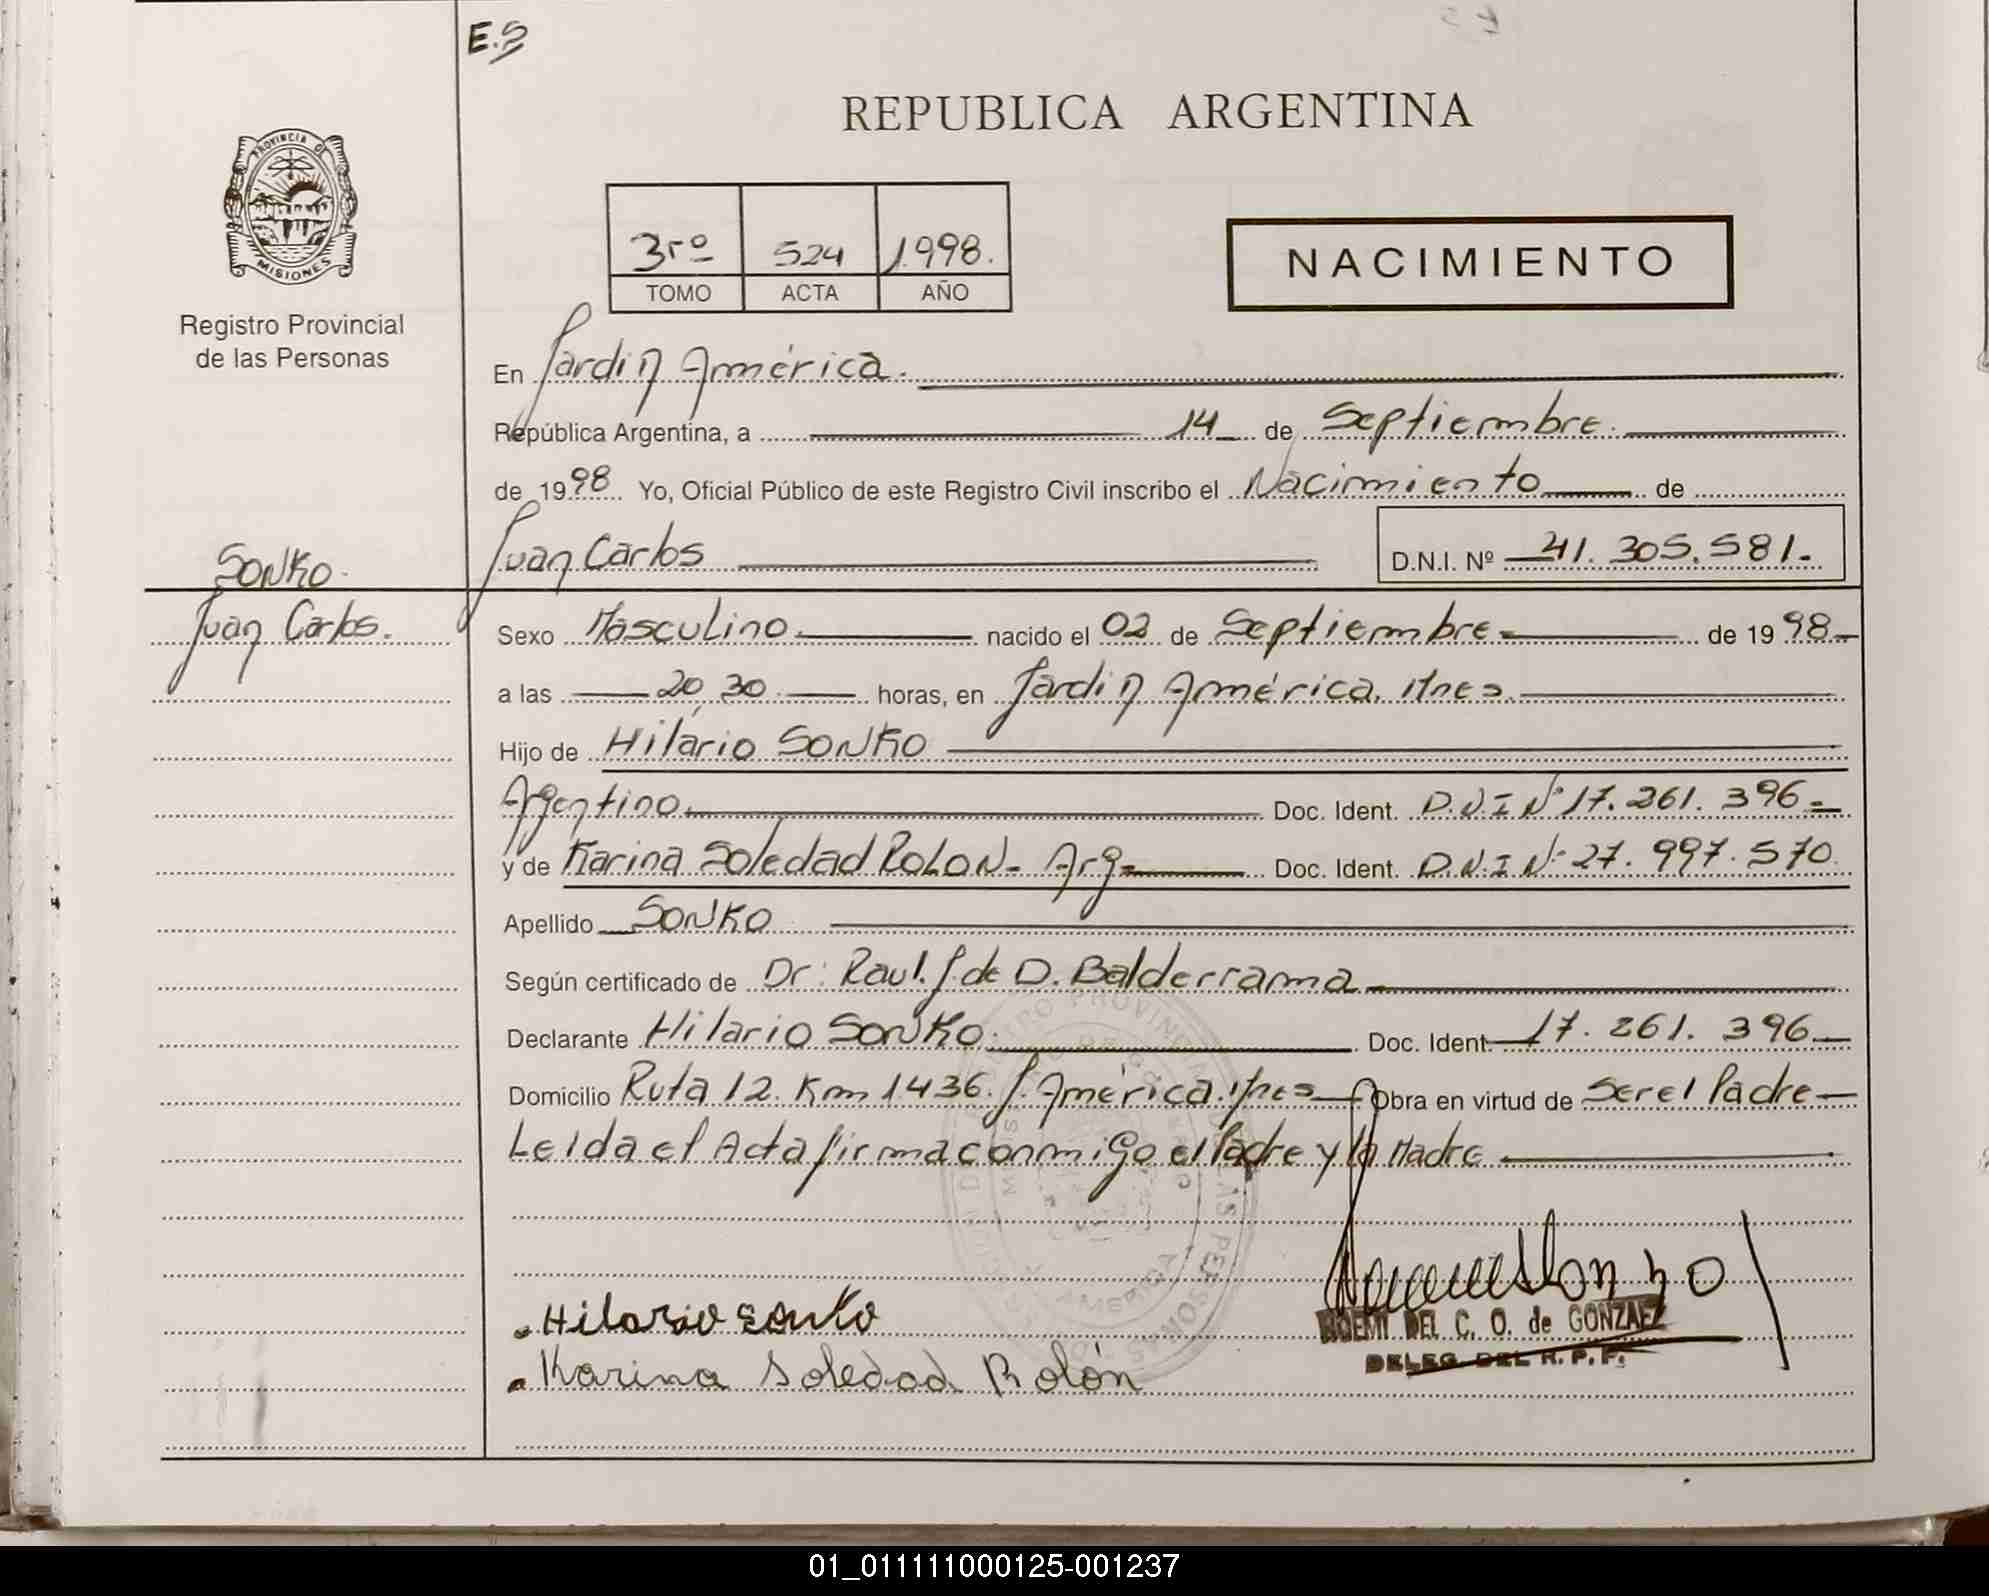 E.S
REPUBLICA ARGENTINA
PROVINCIA DE
MISIONES
Registro Provincial
de las Personas
3ro 524 1.998.
TOMO ACTA AÑO
NACIMIENTO
En Jardin América.
República Argentina, a 14 de Septiembre.
de 1998 Yo, Oficial Público de este Registro Civil inscribo el Nacimiento de
SONKO. Juan Carlos D.N.I. Nº 41.305.581.-
Juan Carlos. Sexo Masculino. nacido el 02 de Septiembre de 1998
a las 20,30 horas, en Jardin América. Mnes.
Hijo de Hilario SONKO
Argentino. Doc. Ident. D.N.I Nº 17.261.396
y de Karina Soledad ROLON- Arg- Doc. Ident. D.N.I Nº 27.997.570
Apellido SONKO
Según certificado de Dr: Raul. J. de D. Balderrama
Declarante Hilario SONKO. Doc. Ident. 17.261.396
Domicilio Ruta 12. Km 1436. J. América. Mnes Obra en virtud de Ser el Padre
Leida el Acta firma conmigo el Padre y la Madre
Hilario Sonko
Karina Soledad Rolón
NOEMI DEL C. O. de GONZAEZ
DELEG. DEL R. P. P.
01_011111000125-001237